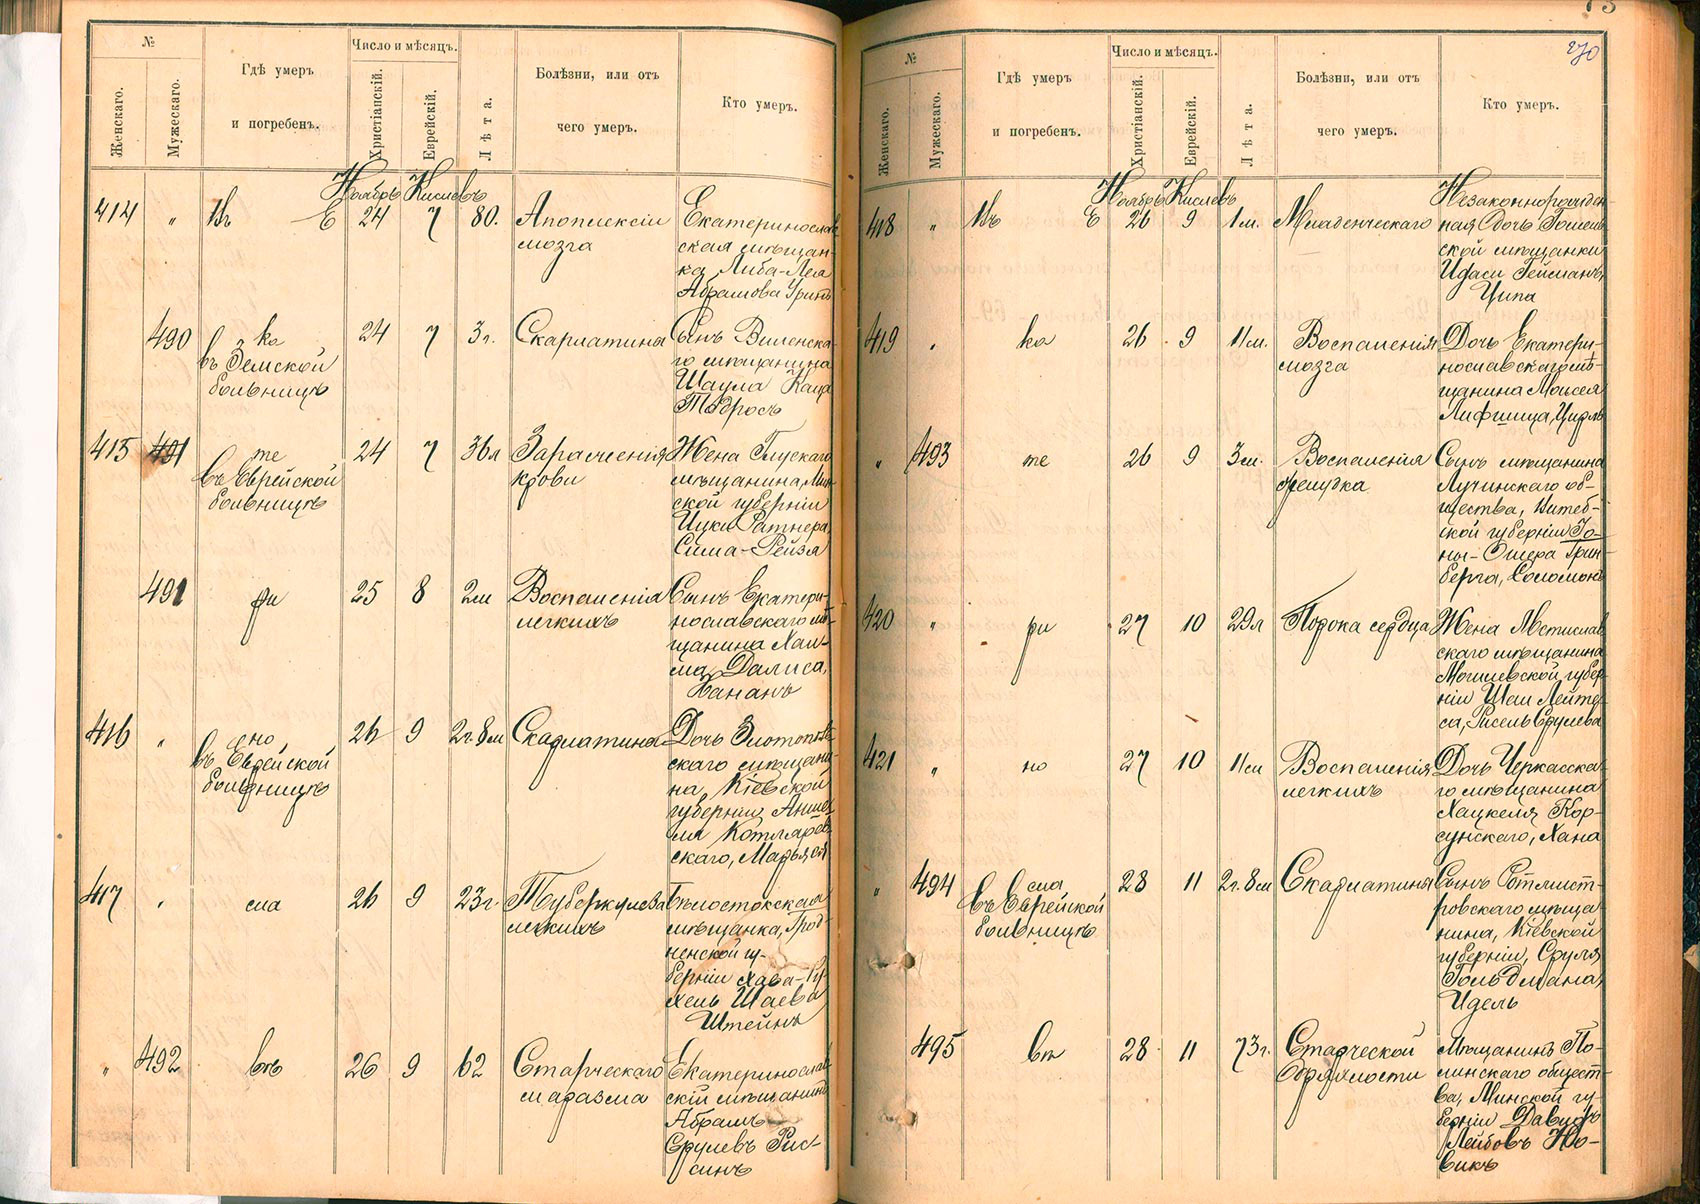 №
Женскаго.
Мужескаго.
Гдѣ умеръ
и погребенъ.
Число и мѣсяцъ.
Христіанскій.
Еврейскій.
Лѣта.
Болѣзни, или отъ
чего умеръ.
Кто умеръ.
Ноябрь Кислевъ
414 " Въ Е 24 7 80. Апоплексіи
мозга
Екатеринослав
ская мѣщан-
ка Либа-Лея
Абрамова
490 ка 24 7 3г. Скарлатина
въ Земской
больницѣ
Сынъ Виленска-
го мѣщанина
Шаула Каца
Тодросъ
415 491 те 24 7 36л Зараженія
въ Еврейской
больницѣ
крови
Жена Глускаго
мѣщанина, Мин-
ской губерніи
Ицки Ратнера,
Сима-Рейзя
491 ри 25 8 2м Воспаленія
легкихъ
Сынъ Екатери-
нославскаго мѣ-
щанина Хаи-
ма Далиса,
Хананъ
416 " но 26 9 2г. 8м Скарлатина
въ Еврейской
больницѣ
Дочь Злотопол
скаго мѣщани-
на, Кіевской
губерніи Анше-
ля Котлярев
скаго,
417 " сла 26 9 23г. Туберкулеза
легкихъ
Бѣлостокская
мѣщанка, Грод-
ненской гу-
берніи Хава-Ру-
хель Шаева
Штейнъ
" 492 въ 26 9 62 Старческаго
маразма
Екатеринослав
скій мѣщанинъ
Абрамъ
Срулевъ Рис-
синъ
270
№
Женскаго.
Мужескаго.
Гдѣ умеръ
и погребенъ.
Число и мѣсяцъ.
Христіанскій.
Еврейскій.
Лѣта.
Болѣзни, или отъ
чего умеръ.
Кто умеръ.
Ноябрь Кислевъ
418 " Въ Е 26 9 1м. Младенческаго
Незаконнорожден-
ная Дочь Гомель
ской мѣщанки
Идаси Гейманъ,
Ципа
419 " ка 26 9 11м. Воспаленія
мозга
Дочь Екатери-
нославскаго мѣ-
щанина Моисея
Лифшица,
" 493 те 26 9 3м. Воспаленія
желудка
Сынъ мѣщанина
Лучинскаго об-
щества, Витеб-
ской губерніи Іо-
ны-Ошера Грин-
берга, Соломонъ
420 " ри 27 10 29л Порока сердца
Жена Мстислав
скаго мѣщанина
Могилевской губер-
ніи Шаи Лейте-
са, Рисель Срулева
421 " но 27 10 11м Воспаленія
легкихъ
Дочь Черкасска-
го мѣщанина
Хацкеля Кор-
сунскаго, Хана
" 494 сла 28 11 2г. 8м Скарлатина
въ Еврейской
больницѣ
Сынъ Ротмист-
ровскаго мѣща-
нина, Кіевской
губерніи, Сруля
Гольдмана,
Идель
495 въ 28 11 73г. Старческой
дряхлости
Мѣщанинъ По-
линскаго общест-
ва, Минской гу-
берніи Давидъ
Лейбовъ Но-
викъ